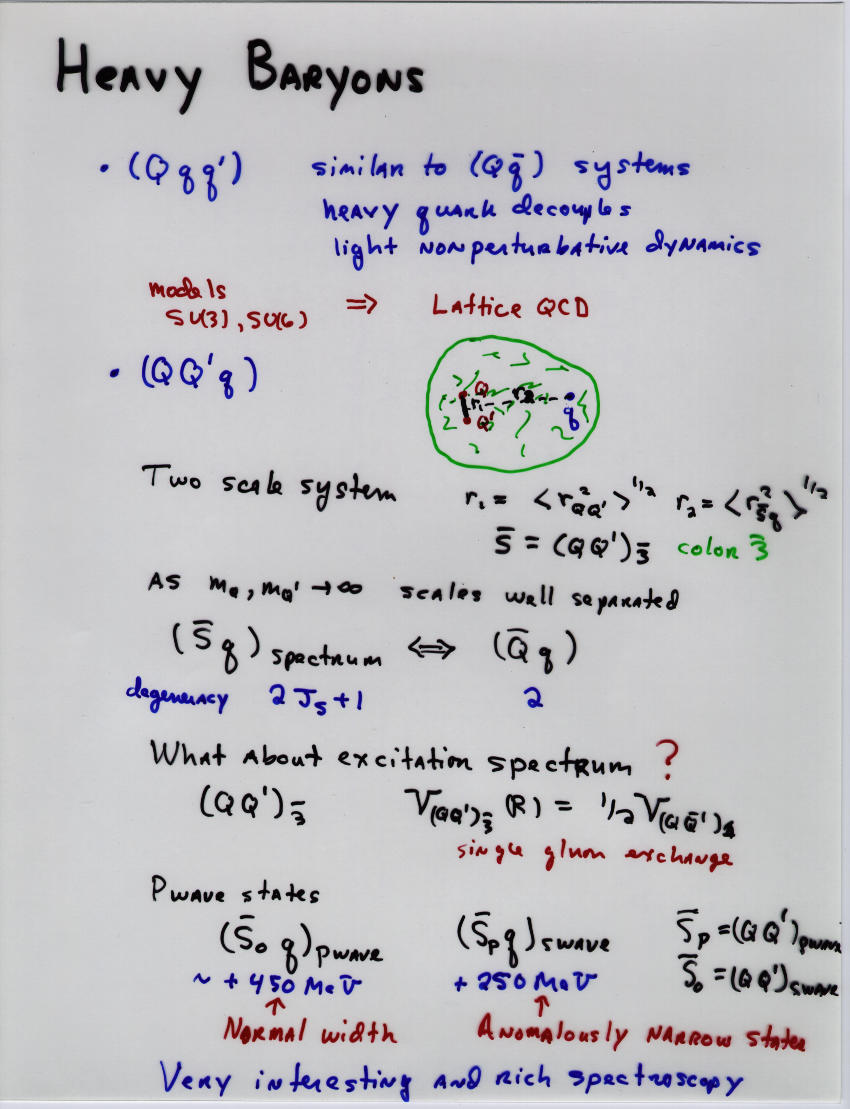 HEAVY BARYONS
• (Q q q') similar to (Q q̄) systems
heavy quark decouples
light nonperturbative dynamics
models
SU(3), SU(6) ⇒ Lattice QCD
• (Q Q' q)
Q
r₁ r₂
Q' q
Two scale system r₁ = <r²_QQ'>^1/2 r₂ = <r²_S̄q>^1/2
S̄ = (QQ')_3̄ color 3̄
As m_Q, m_Q' → ∞ scales well separated
(S̄ q) spectrum ⇔ (Q̄ q)
degeneracy 2J_S + 1 2
What about excitation spectrum ?
(QQ')_3̄ V_(QQ')_3̄ (R) = 1/2 V_(QQ̄')_1
single gluon exchange
P wave states
(S̄₀ q)_P wave (S̄_P q)_S wave S̄_P = (QQ')_P wave
~ + 450 MeV + 250 MeV S̄₀ = (QQ')_S wave
↑ ↑
Normal width Anomalously narrow states
Very interesting and rich spectroscopy